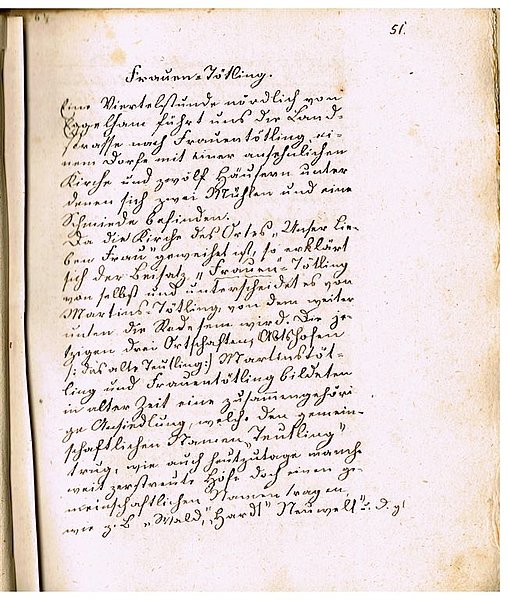 51.
Frauen-Tötling.
Eine Viertelstunde nördlich von
Eggelham führt uns die Land-
strasse nach Frauentötling, ei-
nem Dorfe mit einer ansehnlichen
Kirche und zwölf Häusern unter
denen sich zwei Mühlen und eine
Schmiede befinden.
Da die Kirche des Ortes „Unser lie-
ben Frau" geweihet ist, so erklärt
sich der Beisatz „Frauen"-Tötling
von selbst und unterscheidet es von
Martins-Tötling, von dem weiter
unten die Rede sein wird. Die je-
tzigen drei Ortschaften, Abtshofen
/: das alte Teutling:/ Martinstöt-
ling und Frauentötling bildeten
in alter Zeit eine zusammengehöri-
ge Ansiedlung, welche den gemein-
schaftlichen Namen „Teutling"
trug, wie auch heutzutage manche
weit zerstreute Höfe doch einen ge-
meinschaftlichen Namen tragen
wie z. B. „Wald", „Hardt" Neuwelt" u. d. gl